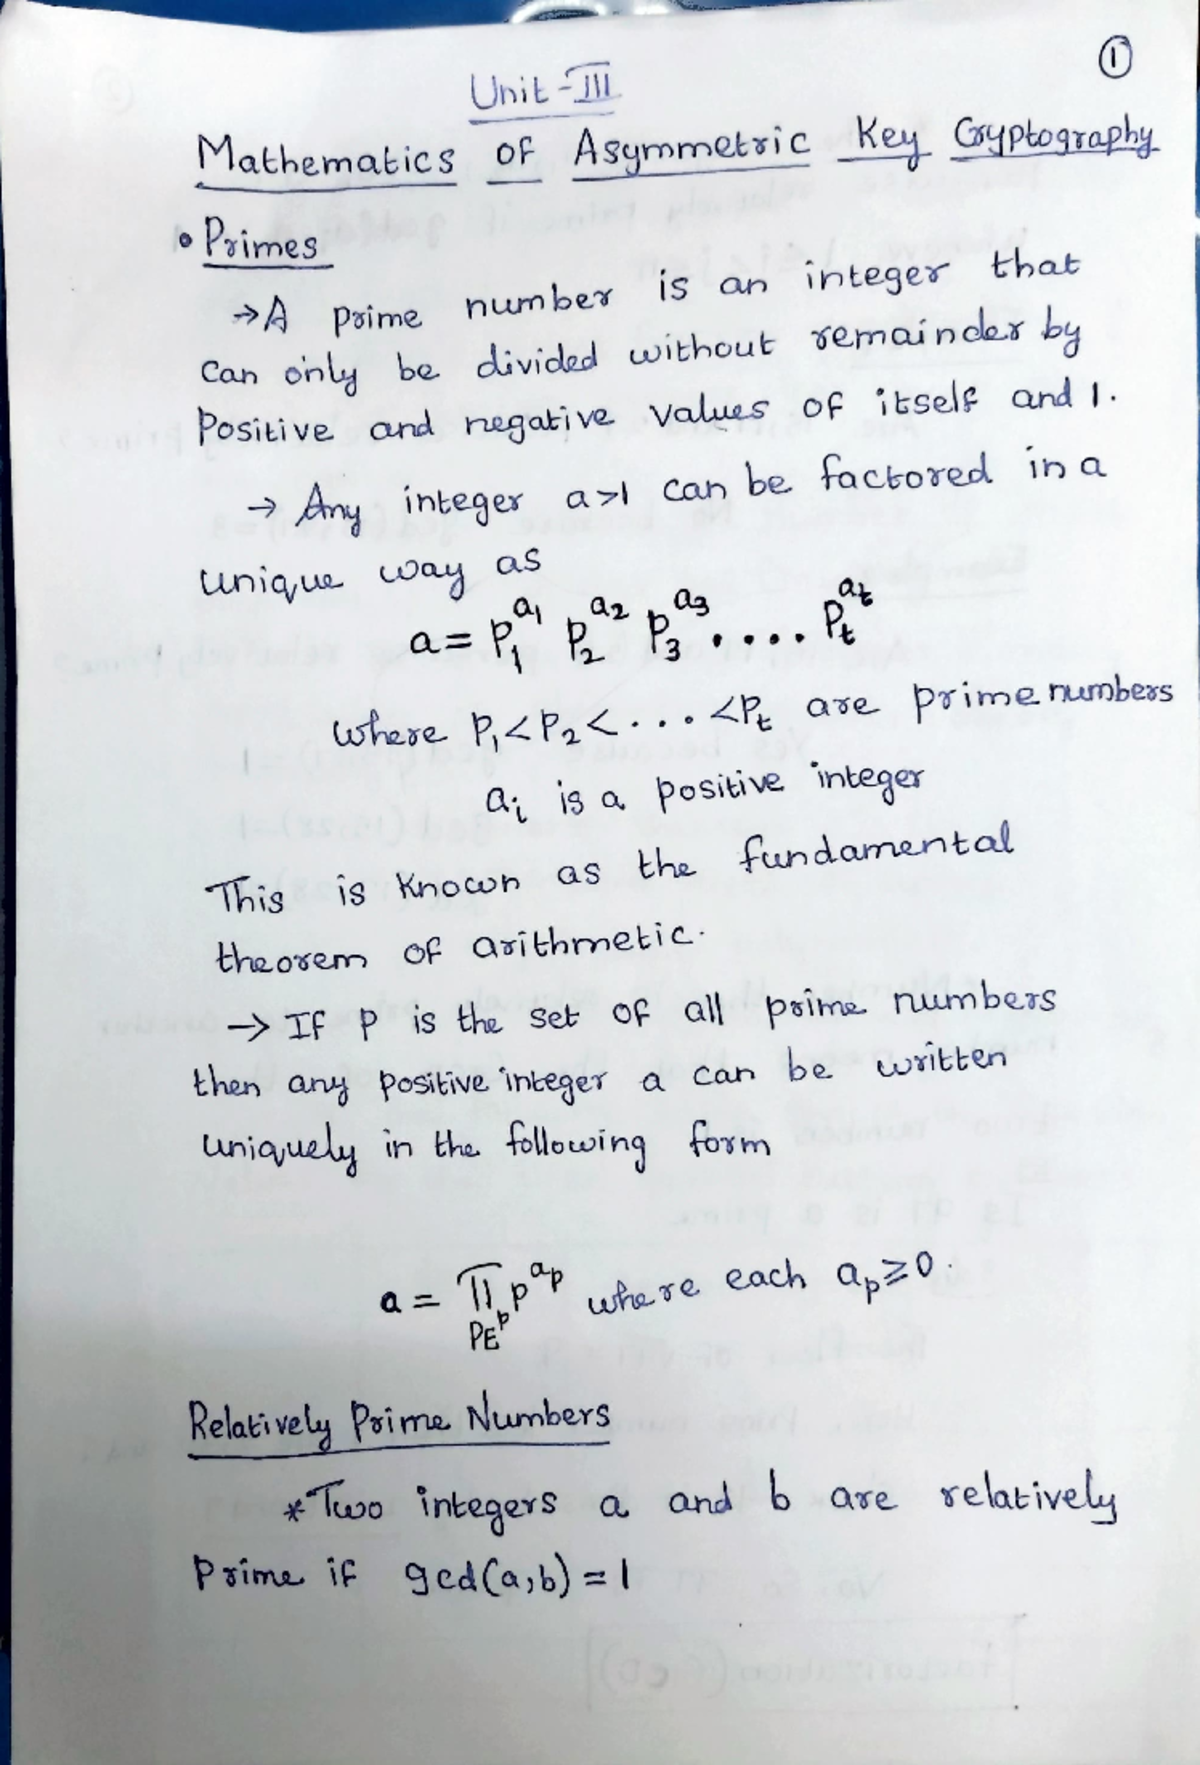 ①
Unit-III
Mathematics of Asymmetric Key Cryptography
• Primes
→A prime number is an integer that
can only be divided without remainder by
Positive and negative values of itself and 1.
→ Any integer a>1 can be factored in a
unique way as
a = P₁^a₁ P₂^a₂ P₃^a₃ .... Pₜ^aₜ
where P₁<P₂<...<Pₜ are prime numbers
aᵢ is a positive integer
This is known as the fundamental
theorem of arithmetic.
→ If P is the set of all prime numbers
then any positive integer a can be written
uniquely in the following form
a = ∏ p^ap where each ap ≥ 0.
PE^p
Relatively Prime Numbers
* Two integers a and b are relatively
Prime if gcd(a,b) = 1